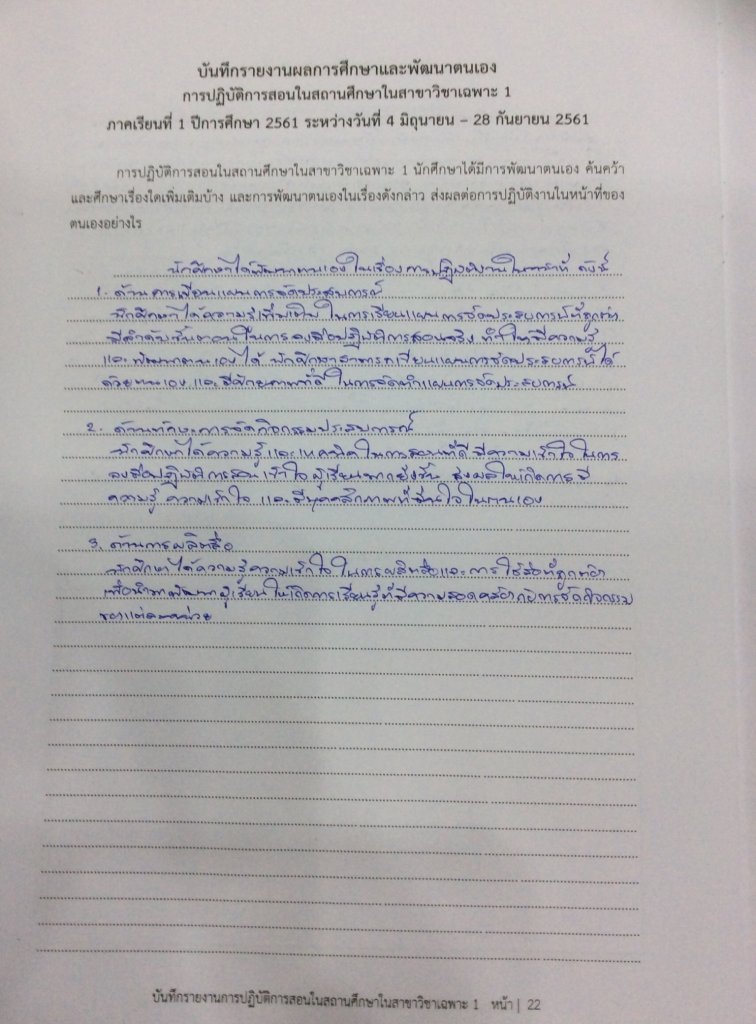 บันทึกรายงานผลการศึกษาและพัฒนาตนเอง
การปฏิบัติการสอนในสถานศึกษาในสาขาวิชาเฉพาะ 1
ภาคเรียนที่ 1 ปีการศึกษา 2561 ระหว่างวันที่ 4 มิถุนายน – 28 กันยายน 2561
การปฏิบัติการสอนในสถานศึกษาในสาขาวิชาเฉพาะ 1 นักศึกษาได้มีการพัฒนาตนเอง ค้นคว้า
และศึกษาเรื่องใดเพิ่มเติมบ้าง และการพัฒนาตนเองในเรื่องดังกล่าว ส่งผลต่อการปฏิบัติงานในหน้าที่ของ
ตนเองอย่างไร
นักศึกษาได้พัฒนาตนเองในเรื่องการปฏิบัติงานในหน้าที่ ดังนี้
1. ด้านการเขียนแผนการจัดประสบการณ์
นักศึกษาได้ความรู้เพิ่มเติมในการเขียนแผนการจัดประสบการณ์ที่ถูกต้อง
มีลำดับขั้นตอนในการลงมือปฏิบัติการสอนจริง ทำให้มีความรู้
และพัฒนาตนเองได้ นักศึกษาสามารถเขียนแผนการจัดประสบการณ์ได้
ด้วยตนเอง และมีศักยภาพที่ดีในการจัดทำแผนการจัดประสบการณ์
2. ด้านทักษะการจัดกิจกรรมประสบการณ์
นักศึกษาได้ความรู้และเทคนิคในการสอนที่ดี มีความเข้าใจในการ
ลงมือปฏิบัติการสอน เข้าใจผู้เรียนมากยิ่งขึ้น ส่งผลให้เกิดการมี
ความรู้ ความเข้าใจ และมีบุคคลิกภาพที่มั่นใจในตนเอง
3. ด้านการผลิตสื่อ
นักศึกษาได้ความรู้ความเข้าใจในการผลิตสื่อและการใช้สื่อที่ถูกต้อง
เพื่อนำมาพัฒนาผู้เรียนให้เกิดการเรียนรู้ที่มีความสอดคล้องกับการจัดกิจกรรม
ของแต่ละหน่วย
บันทึกรายงานการปฏิบัติการสอนในสถานศึกษาในสาขาวิชาเฉพาะ 1 หน้า | 22